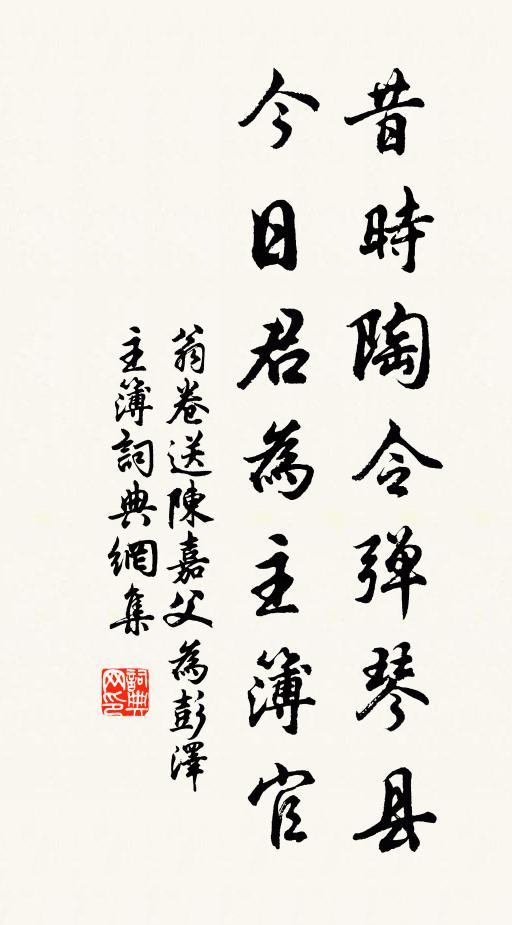 昔時陶令弹琴县
今日君為主簿官
翁卷送陳嘉父為彭澤
主簿詞典網集
詞典網印